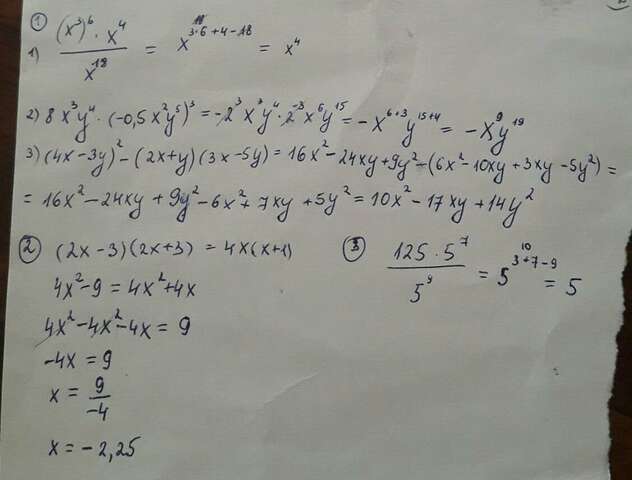 ① 
1) ((x³)⁶ · x⁴) / x¹⁸ = x^(3·6+4-18) = x⁴
2) 8x³y⁴ · (-0,5x²y⁵)³ = -2³x³y⁴ · 2⁻³x⁶y¹⁵ = -x⁶⁺³y¹⁵⁺⁴ = -x⁹y¹⁹
3) (4x-3y)² - (2x+y)(3x-5y) = 16x² - 24xy + 9y² - (6x² - 10xy + 3xy - 5y²) =
= 16x² - 24xy + 9y² - 6x² + 7xy + 5y² = 10x² - 17xy + 14y²
② (2x-3)(2x+3) = 4x(x+1)
4x² - 9 = 4x² + 4x
4x² - 4x² - 4x = 9
-4x = 9
x = 9/-4
x = -2,25
③ (125 · 5⁷) / 5⁹ = 5^(3+7-9) = 5
10